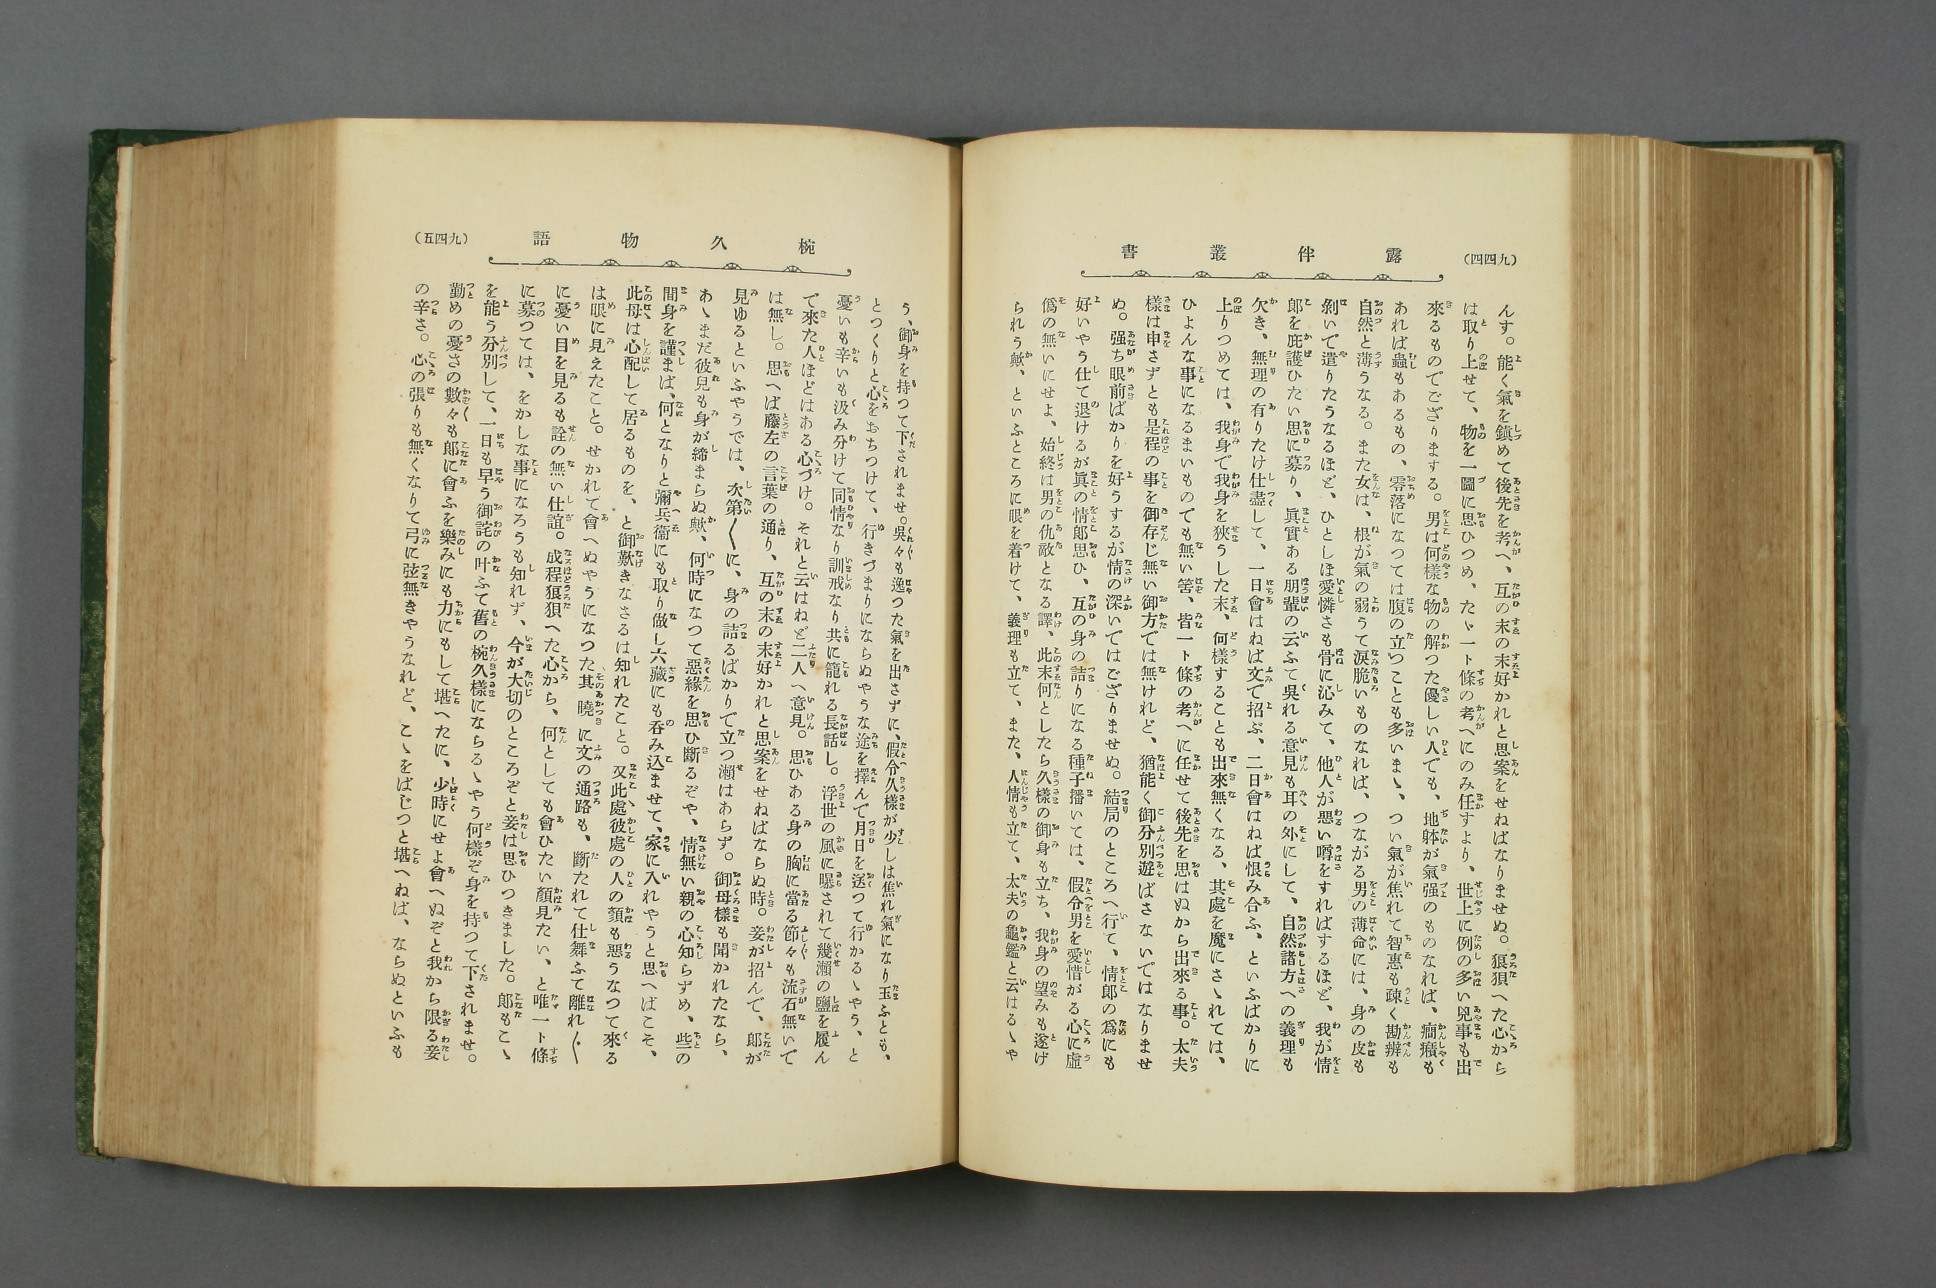 (九四四)
露伴叢書
んす。能く氣を鎭めて後先を考へ、互の末の末好かれと思案をせねばなりませぬ。狼狽へた心から
は取り上せて、物を一圖に思ひつめ、たゞ一ト條の考へにのみ任すより、世上に例の多い兇事も出
來るものでござりまする。男は何樣な物の解つた優しい人でも、地躰が氣强のものなれば、癇癪も
あれば蟲もあるもの、零落になつては腹の立つことも多いまゝ、つい氣が焦れて智惠も疎く勘辨も
自然と薄うなる。また女は、根が氣の弱うて淚脆いものなれば、つながる男の薄命には、身の皮も
剝いで遣りたうなるほど、ひとしほ愛憐さも骨に沁みて、他人が惡い噂をすればするほど、我が情
郎を庇護ひたい思に募り、眞實ある朋輩の云ふて吳れる意見も耳の外にして、自然諸方への義理も
欠き、無理の有りたけ仕盡して、一日會はねば文で招ぶ、二日會はねば恨み合ふ、といふばかりに
上りつめては、我身で我身を狹うした末、何樣することも出來無くなる、其處を魔にさゝれては、
ひよんな事になるまいものでも無い筈、皆一ト條の考へに任せて後先を思はぬから出來る事。太夫
樣は申さずとも是程の事を御存じ無い御方では無けれど、猶能く御分別遊ばさないではなりませ
ぬ。强ち眼前ばかりを好うするが情の深いではござりませぬ。結局のところへ行て、情郎の爲にも
好いやう仕て退けるが眞の情郎思ひ、互の身の詰りになる種子播いては、假令男を愛惜がる心に虛
僞の無いにせよ、始終は男の仇敵となる譯、此末何としたら久樣の御身も立ち、我身の望みも遂げ
られう歟、といふところに眼を着けて、義理も立て、また、人情も立て、太夫の龜鑑と云はるゝや
椀久物語
(九四五)
う、御身を持つて下されませ。吳々も逸つた氣を出さずに、假令久樣が少しは焦れ氣になり玉ふとも、
とつくりと心をおちつけて、行きづまりにならぬやうな途を擇んで月日を送つて行かるゝやう、と
憂いも辛いも汲み分けて同情なり訓戒なり共に籠れる長話し。浮世の風に曝されて幾瀨の鹽を履ん
で來た人ほどはある心づけ。それと云はねど二人へ意見。思ひある身の胸に當る節々も流石無いで
は無し。思へば藤左の言葉の通り、互の末の末好かれと思案をせねばならぬ時。妾が招んで、郎が
見ゆるといふやうでは、次第〱に、身の詰るばかりで立つ瀨はあらず。御母樣も聞かれたなら、
あゝまだ彼兒も身が締まらぬ歟、何時になつて惡緣を思ひ斷るぞや、情無い親の心知らずめ、些の
間身を謹まば、何となりと彌兵衞にも取り做し六藏にも吞み込ませて、家に入れやうと思へばこそ、
此母は心配して居るものを、と御歎きなさるは知れたこと。又此處彼處の人の顏も惡うなつて來る
は眼に見えたこと。せかれて會へぬやうになつた其曉に文の通路も、斷たれて仕舞ふて離れ〲
に憂い目を見るも詮の無い仕誼。成程狼狽へた心から、何としても會ひたい顏見たい、と唯一ト條
に募つては、をかしな事になろうも知れず、今が大切のところぞと妾は思ひつきました。郎もこゝ
を能う分別して、一日も早う御詫の叶ふて舊の椀久樣にならるゝやう何樣ぞ身を持つて下されませ。
勤めの憂さの數々も郎に會ふを樂みにも力にもして堪へたに、少時にせよ會へぬぞと我から限る妾
の辛さ。心の張りも無くなりて弓に弦無きやうなれど、こゝをばじつと堪へねば、ならぬといふも